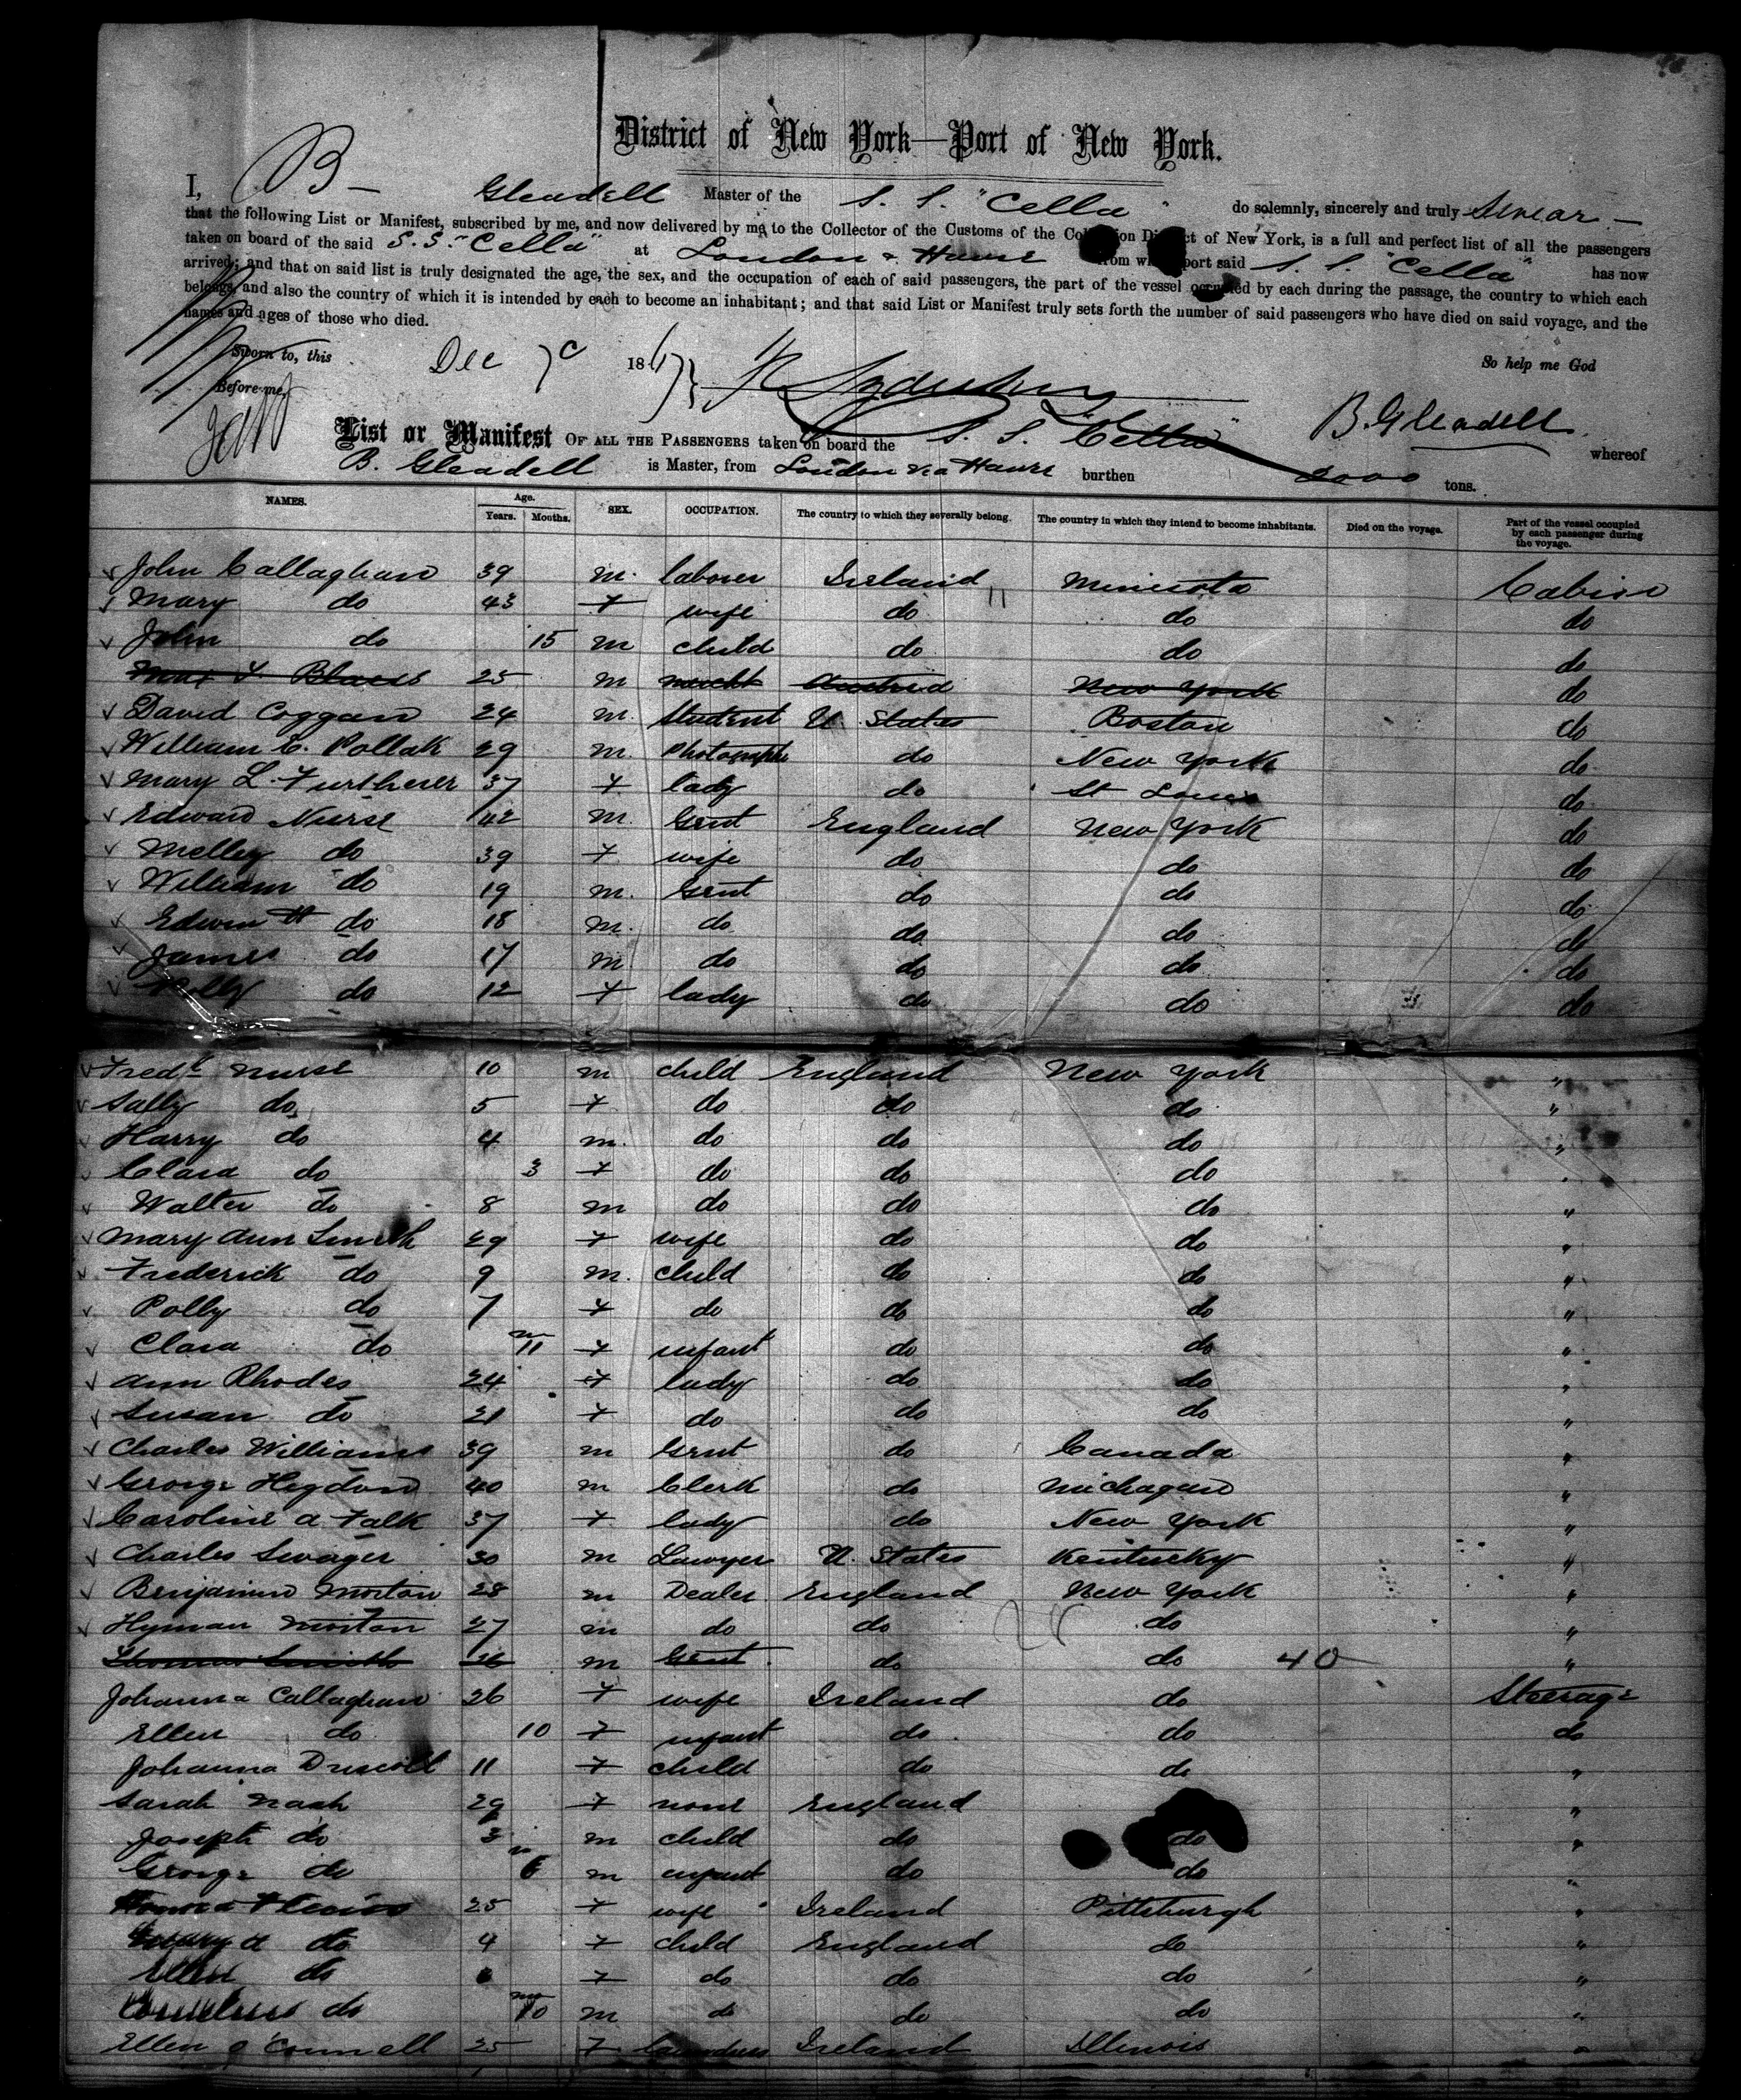 District of New York—Port of New York.
I, B— Gleadell Master of the S. S. "Cella" do solemnly, sincerely and truly Swear—
that the following List or Manifest, subscribed by me, and now delivered by me to the Collector of the Customs of the Collection District of New York, is a full and perfect list of all the passengers
taken on board of the said S. S. "Cella" at London & Havre from which port said S. S. "Cella" has now
arrived; and that on said list is truly designated the age, the sex, and the occupation of each of said passengers, the part of the vessel occupied by each during the passage, the country to which each
belongs, and also the country of which it is intended by each to become an inhabitant; and that said List or Manifest truly sets forth the number of said passengers who have died on said voyage, and the
names and ages of those who died.
So help me God
Sworn to, this Dec 7 1867
Before me,
B. Gleadell
List or Manifest OF ALL THE PASSENGERS taken on board the S. S. "Cella" whereof
B. Gleadell is Master, from London via Havre burthen 2000 tons.
NAMES. Age. Years. Months. SEX. OCCUPATION. The country to which they severally belong. The country in which they intend to become inhabitants. Died on the voyage. Part of the vessel occupied by each passenger during the voyage.
John Callaghan 39 m. laborer Ireland Minesota Cabin
Mary do 43 f wife do do do
John do 15 m child do do do
25 m New York do
David Coggan 24 m. Student U. States Boston do
William C. Pollak 29 m. Photographr do New York do
Mary L. Furtherer 37 f lady do St Louis do
Edward Nurse 42 m. Gent England New York do
Melley do 39 f wife do do do
William do 19 m. Gent do do do
Edwin H do 18 m. do do do do
James do 17 m. do do do do
Polly do 12 f lady do do do
Fredk Nurse 10 m child England New York "
Sally do 5 f do do do "
Harry do 4 m. do do do "
Clara do 3 f do do do "
Walter do 8 m do do do "
Mary Ann Smith 29 f wife do do "
Frederick do 9 m. child do do "
Polly do 7 f do do do "
Clara do m 11 f infant do do "
Ann Rhodes 24 f lady do do "
Susan do 21 f do do do "
Charles Williams 39 m Gent do Canada "
George Higdon 40 m Clerk do Michagan "
Caroline A Falk 37 f lady do New York "
Charles Swager 30 m Lawyer U. States Kentucky "
Benjamin Morton 28 m Dealer England New York "
Hyman Morton 27 m do do do "
Thomas Smith 26 m Gent. do do 40 "
Johanna Callaghan 26 f wife Ireland do Steerage
Ellen do 10 f infant do do do
Johanna Driscoll 11 f child do do "
Sarah Nash 29 f none England "
Joseph do 3 m child do do "
George do m 6 m infant do do "
25 f wife Ireland Pittsburgh "
Mary A do 4 f child England do "
Ellen do f do do do "
Cornelius do mo 10 m do do do "
Ellen O'Connell 25 f Ireland Illinois "